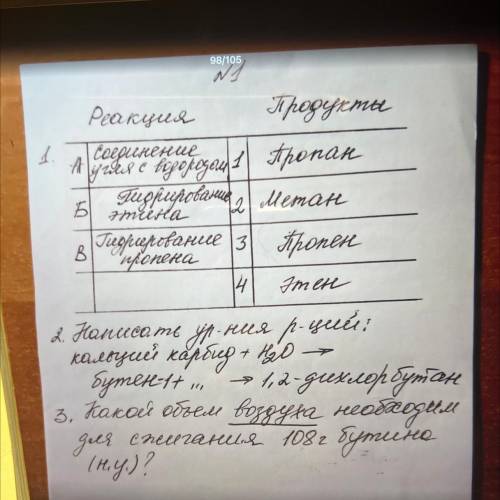 98/105
№1
Реакция Продукты
1. А Соединение угля с водородом 1 Пропан
Б Гидрирование этина 2 Метан
В Гидрирование пропена 3 Пропен
4 Этен
2. Написать ур-ния р-ций:
кальций карбид + H₂O →
бутен-1 + ,,, → 1,2-дихлорбутан
3. Какой объем воздуха необходим
для сжигания 108г бутина
(н.у.)?